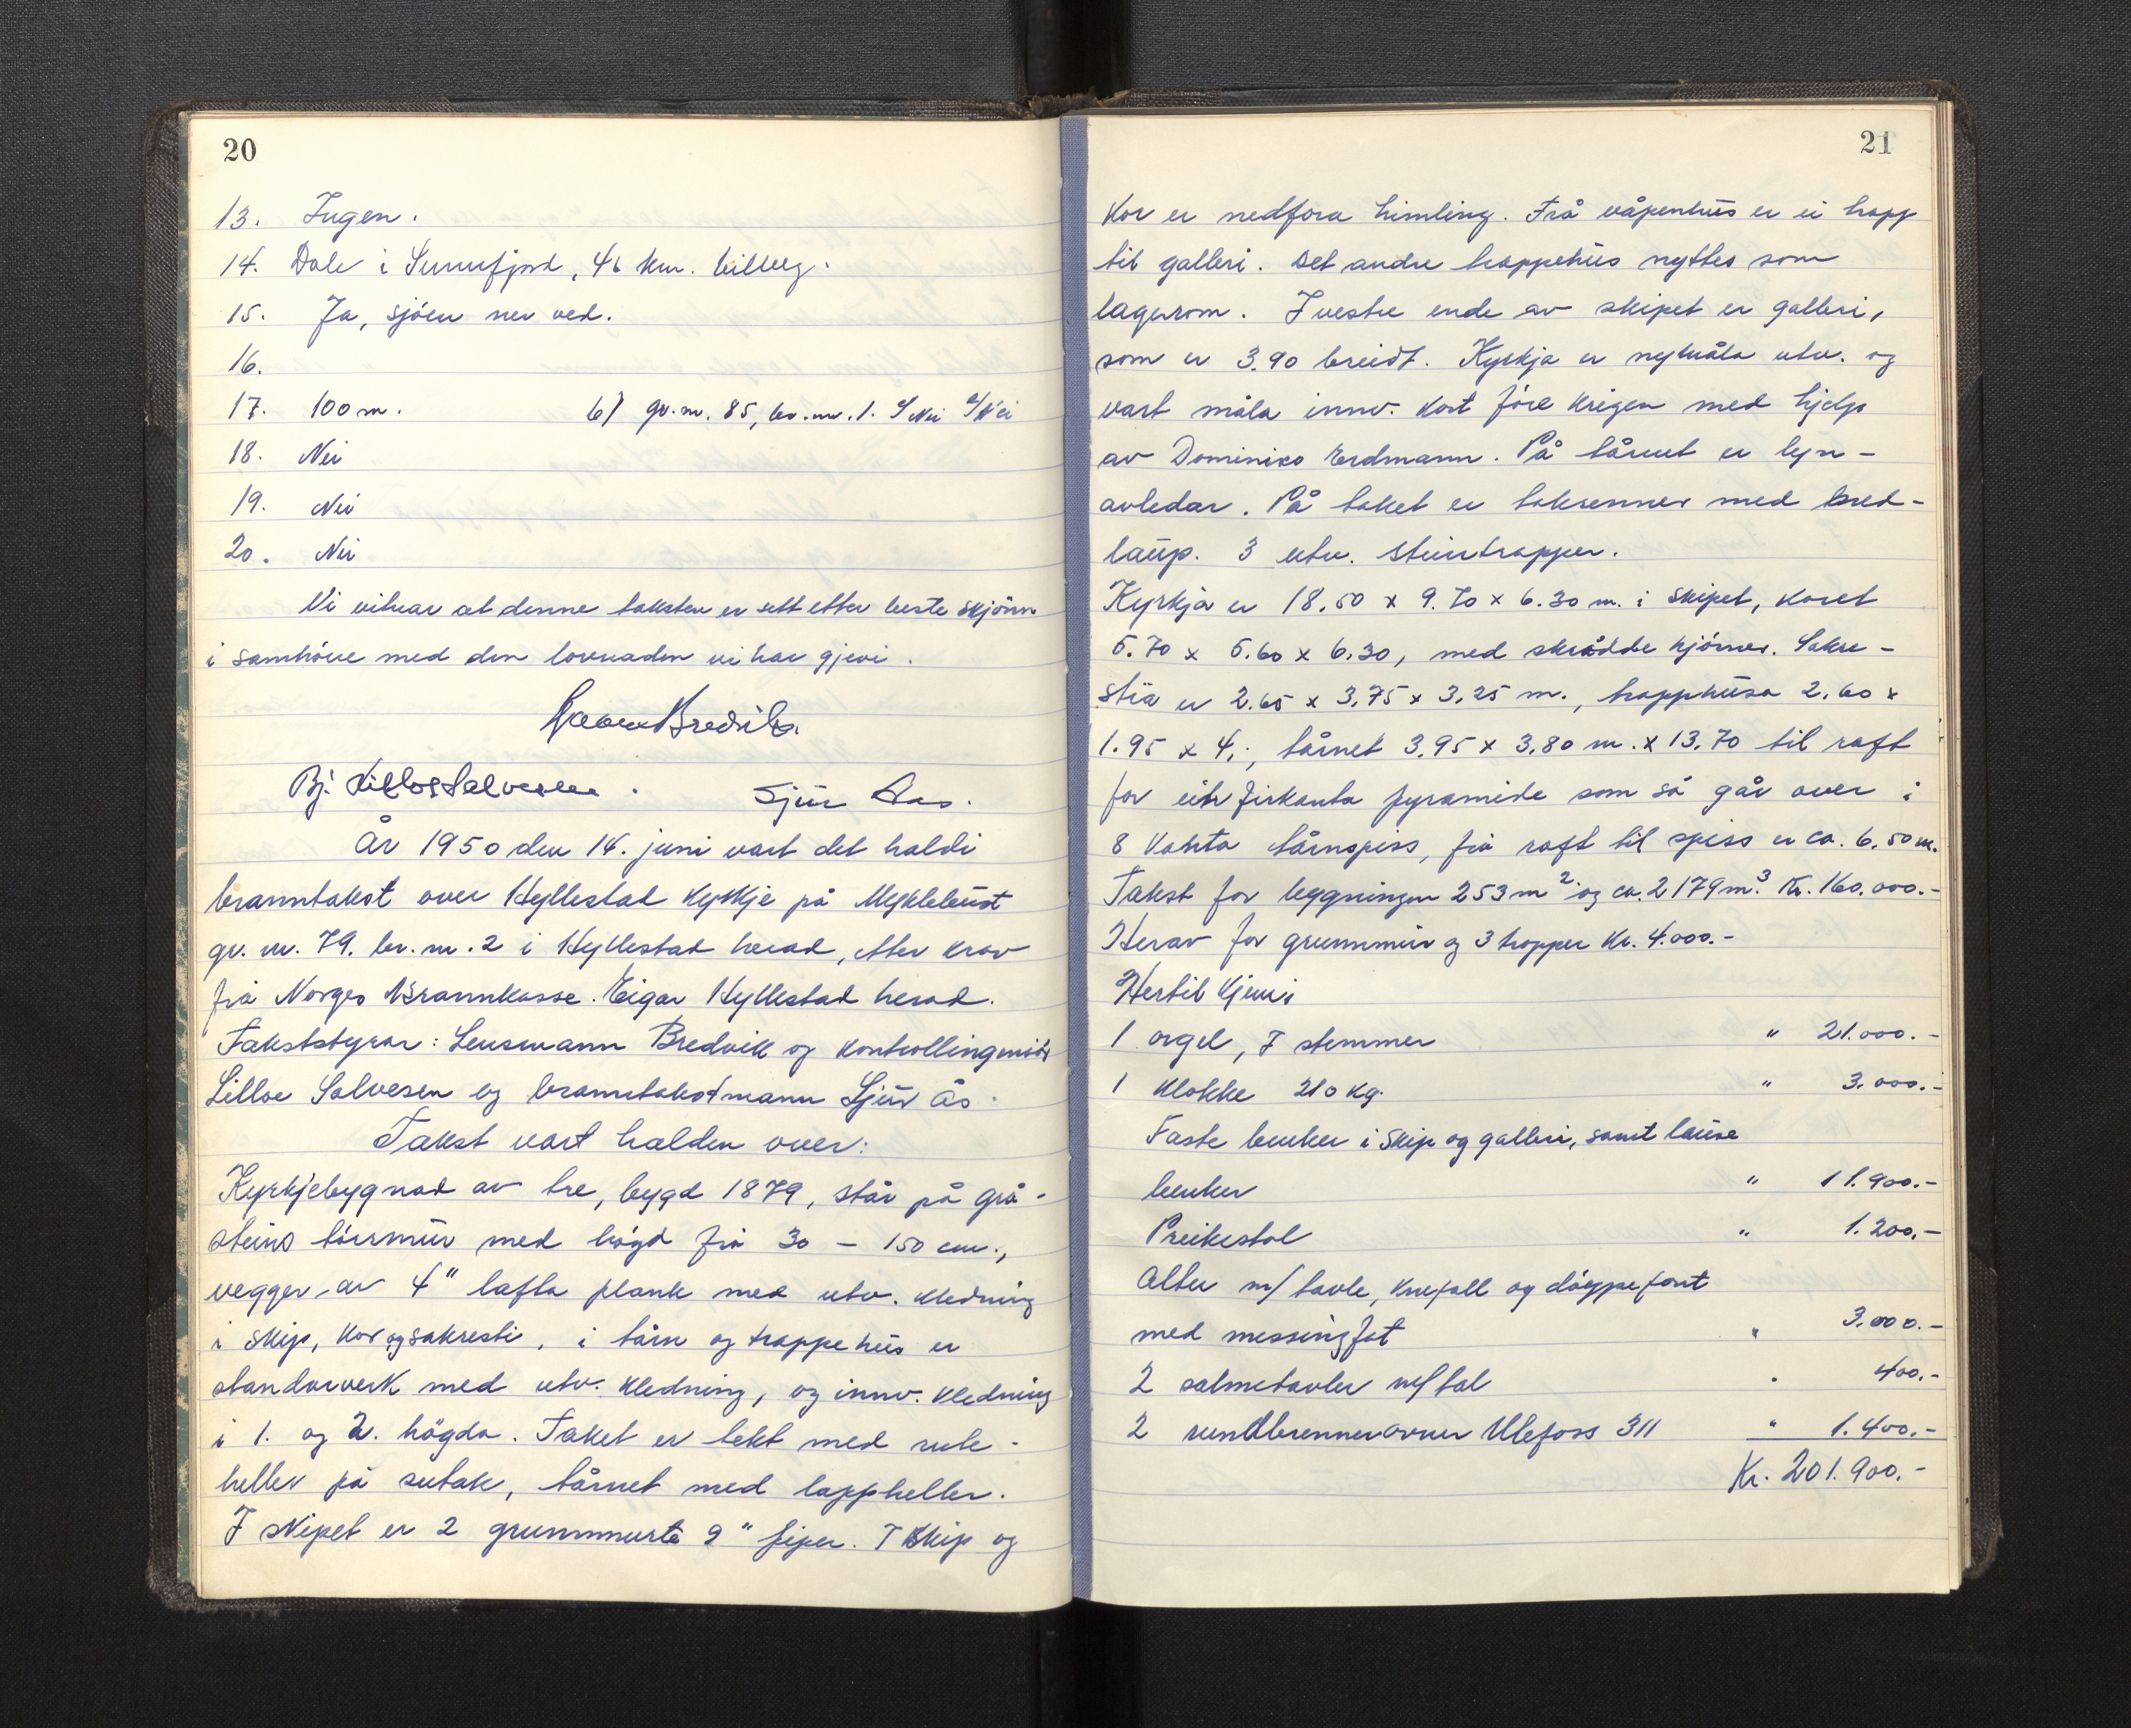 20
13. Ingen.
14. Dale i Sunnfjord, 46 km. bilveg.
15. Ja, sjöen nær ved.
16.
17. 100 m. b) gr. nr. 85, br. nr. 1. c/ Nei d/ Nei
18. Nei
19. Nei
20. Nei
Vi vitnar at denne taksten er sett etter beste skjönn
i samhöve med den lovnaden vi har gjevi.
Bredvik
Bj. Lilloe Salvesen. Sjur Aas.
År 1950 den 14. juni vart det haldi
branntakst over Hyllestad kyrkje på Myklebust
gr. nr. 79. br. nr. 2 i Hyllestad herad, etter krav
frå Norges Brannkasse. Eigar Hyllestad herad.
Takststyrar: Lensmann Bredvik og kontrollingeniör
Lilloe Salvesen og branntakstmann Sjur Ås.
Takst vart halden over:
Kyrkjebygnad av tre, bygd 1879, står på grå-
steins törrmur med högd frå 30 - 150 cm.,
vegger av 4" lafta plank med utv. kledning
i skip, kor og sakresti, i tårn og trappehus er
standarverk med utv. kledning, og innv. kledning
i 1. og 2. högda. Taket er tekt med rute-
heller på sutak, tårnet med lappheller.
I skipet er 2 grunnmurte 9" piper. I skip og
21
kor er nedfora himling. Frå våpenhus er ei trapp
til galleri. Det andre trappehus nyttes som
lagerrom. I vestre ende av skipet er galleri,
som er 3.90 breidt. Kyrkja er nymåla utv. og
vart måla innv. kort före krigen med hjelp
av Dominiko Erdmann. På tårnet er lyn-
avledar. På taket er takrenner med ned-
laup. 3 utv. steintrapper.
Kyrkja er 18.50 x 9.70 x 6.30 m. i skipet, koret
5.70 x 5.60 x 6.30, med skrådde hjörner. Sakre-
stia er 2.65 x 3.75 x 3.25 m., trapphusa 2.60 x
1.95 x 4,-, tårnet 3.95 x 3.80 m. x 13.70 til raft
for ein firkanta pyramide som så går over i
8 kanta tårnspiss, frå raft til spiss er ca. 6.50 m.
Takst for byggningen 253 m² og ca. 2179 m³. Kr. 160.000.-
Herav for grunnmur og 3 trapper kr. 4.000.-
Hertil kjem:
1 orgel, 7 stemmer " 21.000.-
1 klokke 210 kg. " 3.000.-
Faste benker i skip og galleri, samt lause
benker " 11.900.-
Preikestol " 1.200.-
Alter m/ tavle, knefall og döypefont
med messingfat " 3.000.-
2 salmetavler m/ tal " 400.-
2 rundbrennerovner Ulefoss 311 " 1.400.-
Kr. 201.900.-